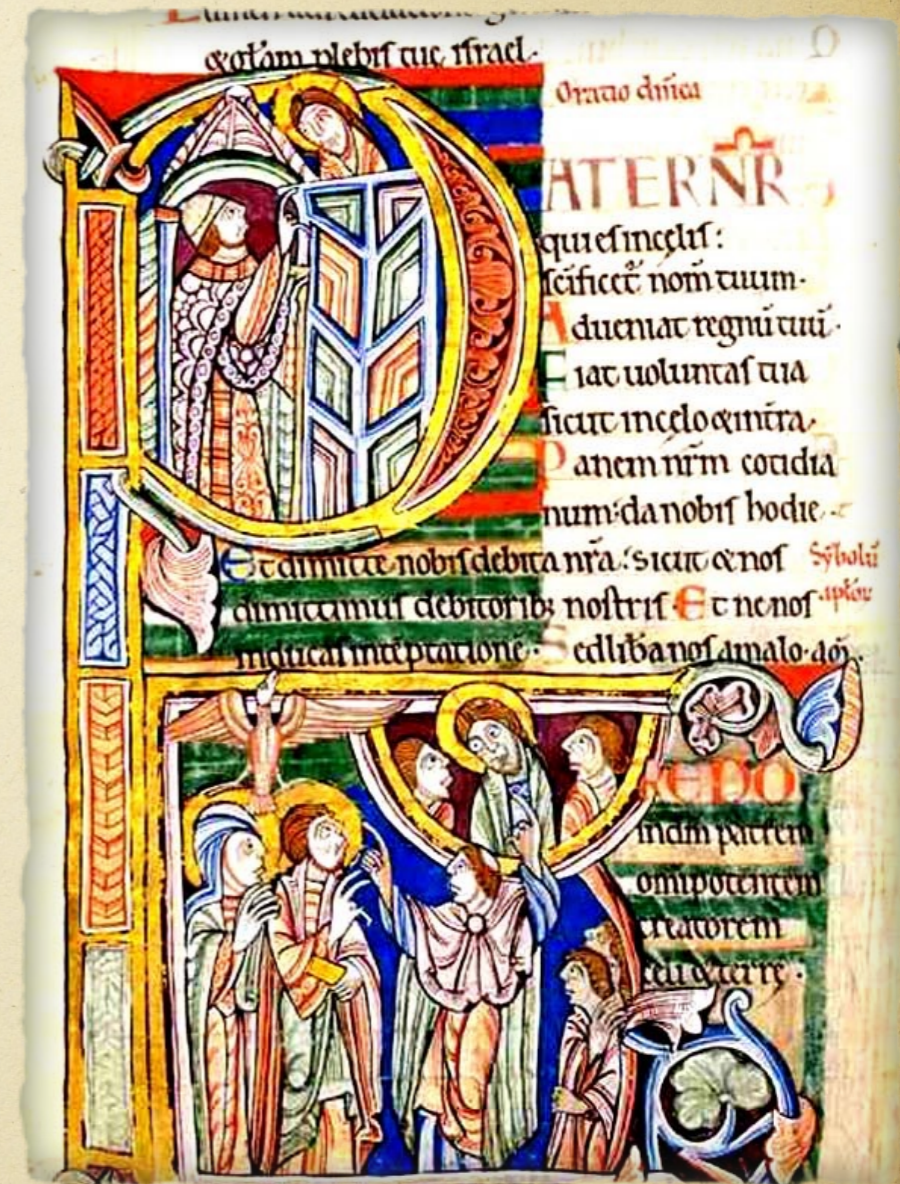 &gl̄am plebiſ tuę iſrael·
Oratio dñica
PATER NR̄
qui eſ in cęliſ:
ſcificet̄ nom̄ tuum·
Adueniat regnū tuū·
Fiat uoluntaſ tua
ſicut in cęlo & in t̄ra,
Panem nr̄m cotidia
num: da nobiſ hodie·
Et dimitte nobiſ debita nr̄a: Sicut & noſ
Sȳbolū
dimittimuſ debitorib; noſtriſ Et ne noſ
apl̄oꝝ
inducaſ in tēptatione· Sed lib̄a noſ a malo· am̄·
CREDO
in dm̄ patrem
omipotentem
creatorem
cęli & terrę·